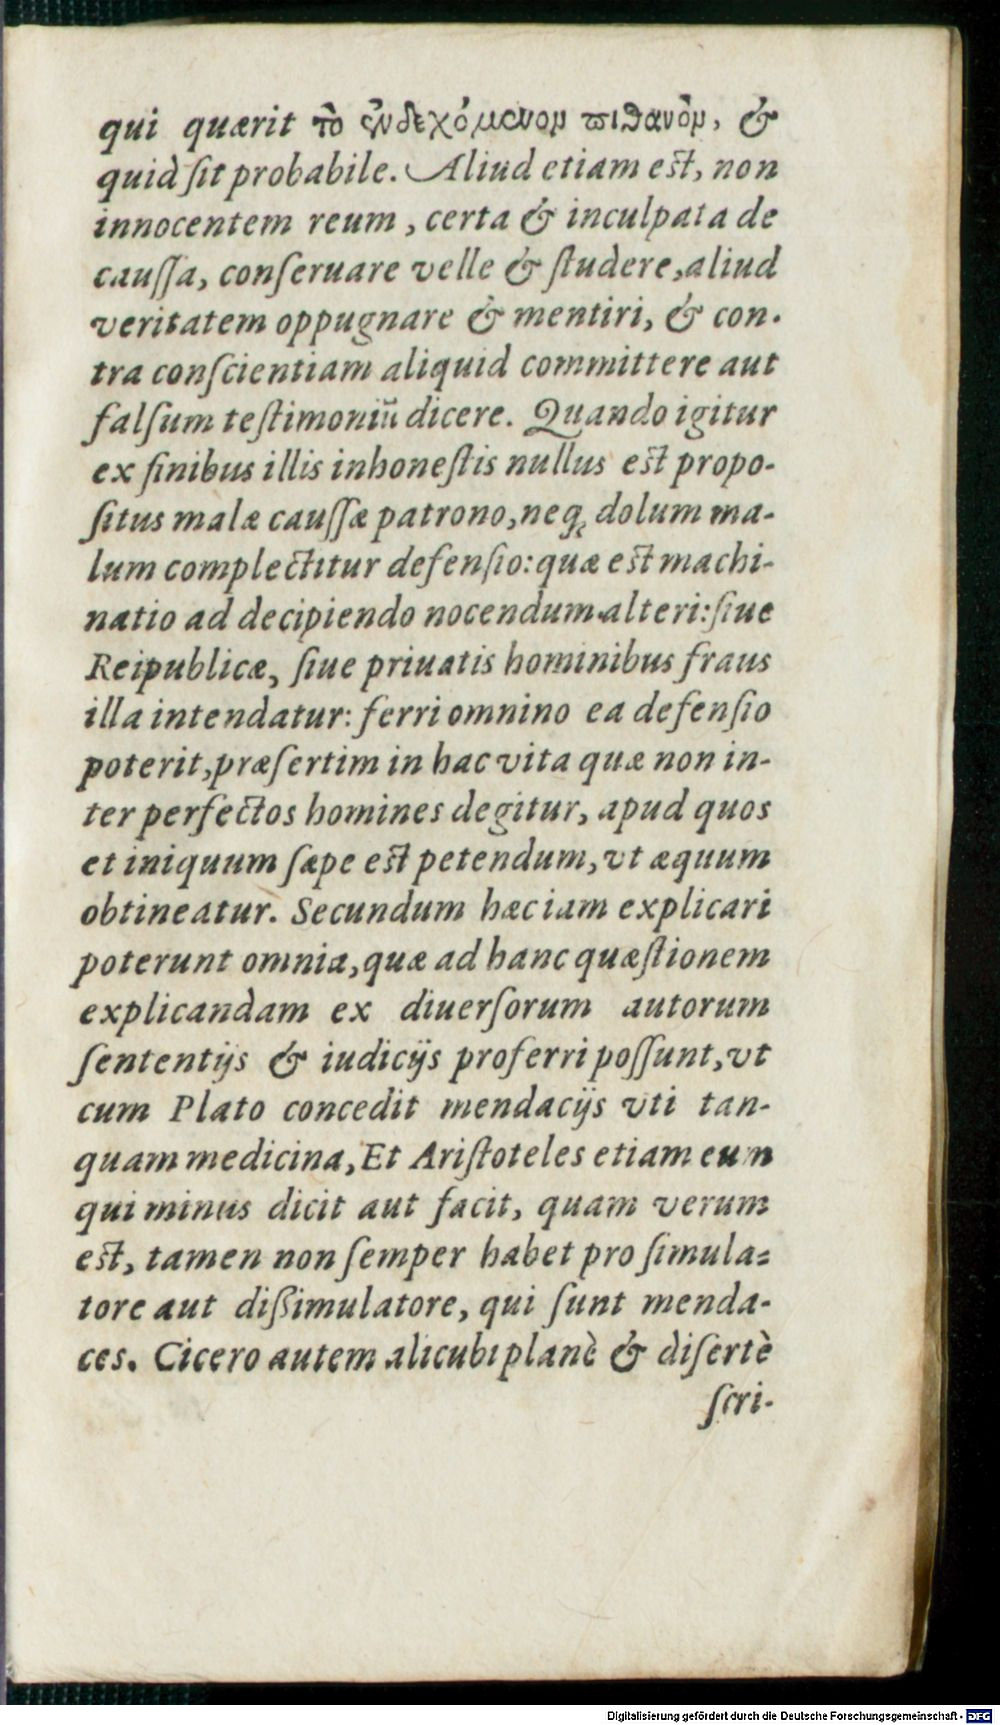 qui quærit τὸ ἐνδεχόμενον πιθανὸν, &
quid ſit probabile. Aliud etiam eſt, non
innocentem reum, certa & inculpata de
cauſſa, conſeruare velle & ſtudere, aliud
veritatem oppugnare & mentiri, & con-
tra conſcientiam aliquid committere aut
falſum teſtimoniū dicere. Quando igitur
ex finibus illis inhoneſtis nullus eſt propo-
ſitus malæ cauſſæ patrono, neq; dolum ma-
lum complectitur defenſio: quæ eſt machi-
natio ad decipiendo nocendum alteri: ſiue
Reipublicæ, ſiue priuatis hominibus fraus
illa intendatur: ferri omnino ea defenſio
poterit, præſertim in hac vita quæ non in-
ter perfectos homines degitur, apud quos
et iniquum ſæpe eſt petendum, vt æquum
obtineatur. Secundum hæc iam explicari
poterunt omnia, quæ ad hanc quæſtionem
explicandam ex diuerſorum autorum
ſententijs & iudicijs proferri poſſunt, vt
cum Plato concedit mendacijs vti tan-
quam medicina, Et Ariſtoteles etiam eum
qui minus dicit aut facit, quam verum
eſt, tamen non ſemper habet pro ſimula=
tore aut dißimulatore, qui ſunt menda-
ces. Cicero autem alicubi planè & diſertè
ſcri-
Digitalisierung gefördert durch die Deutsche Forschungsgemeinschaft - DFG